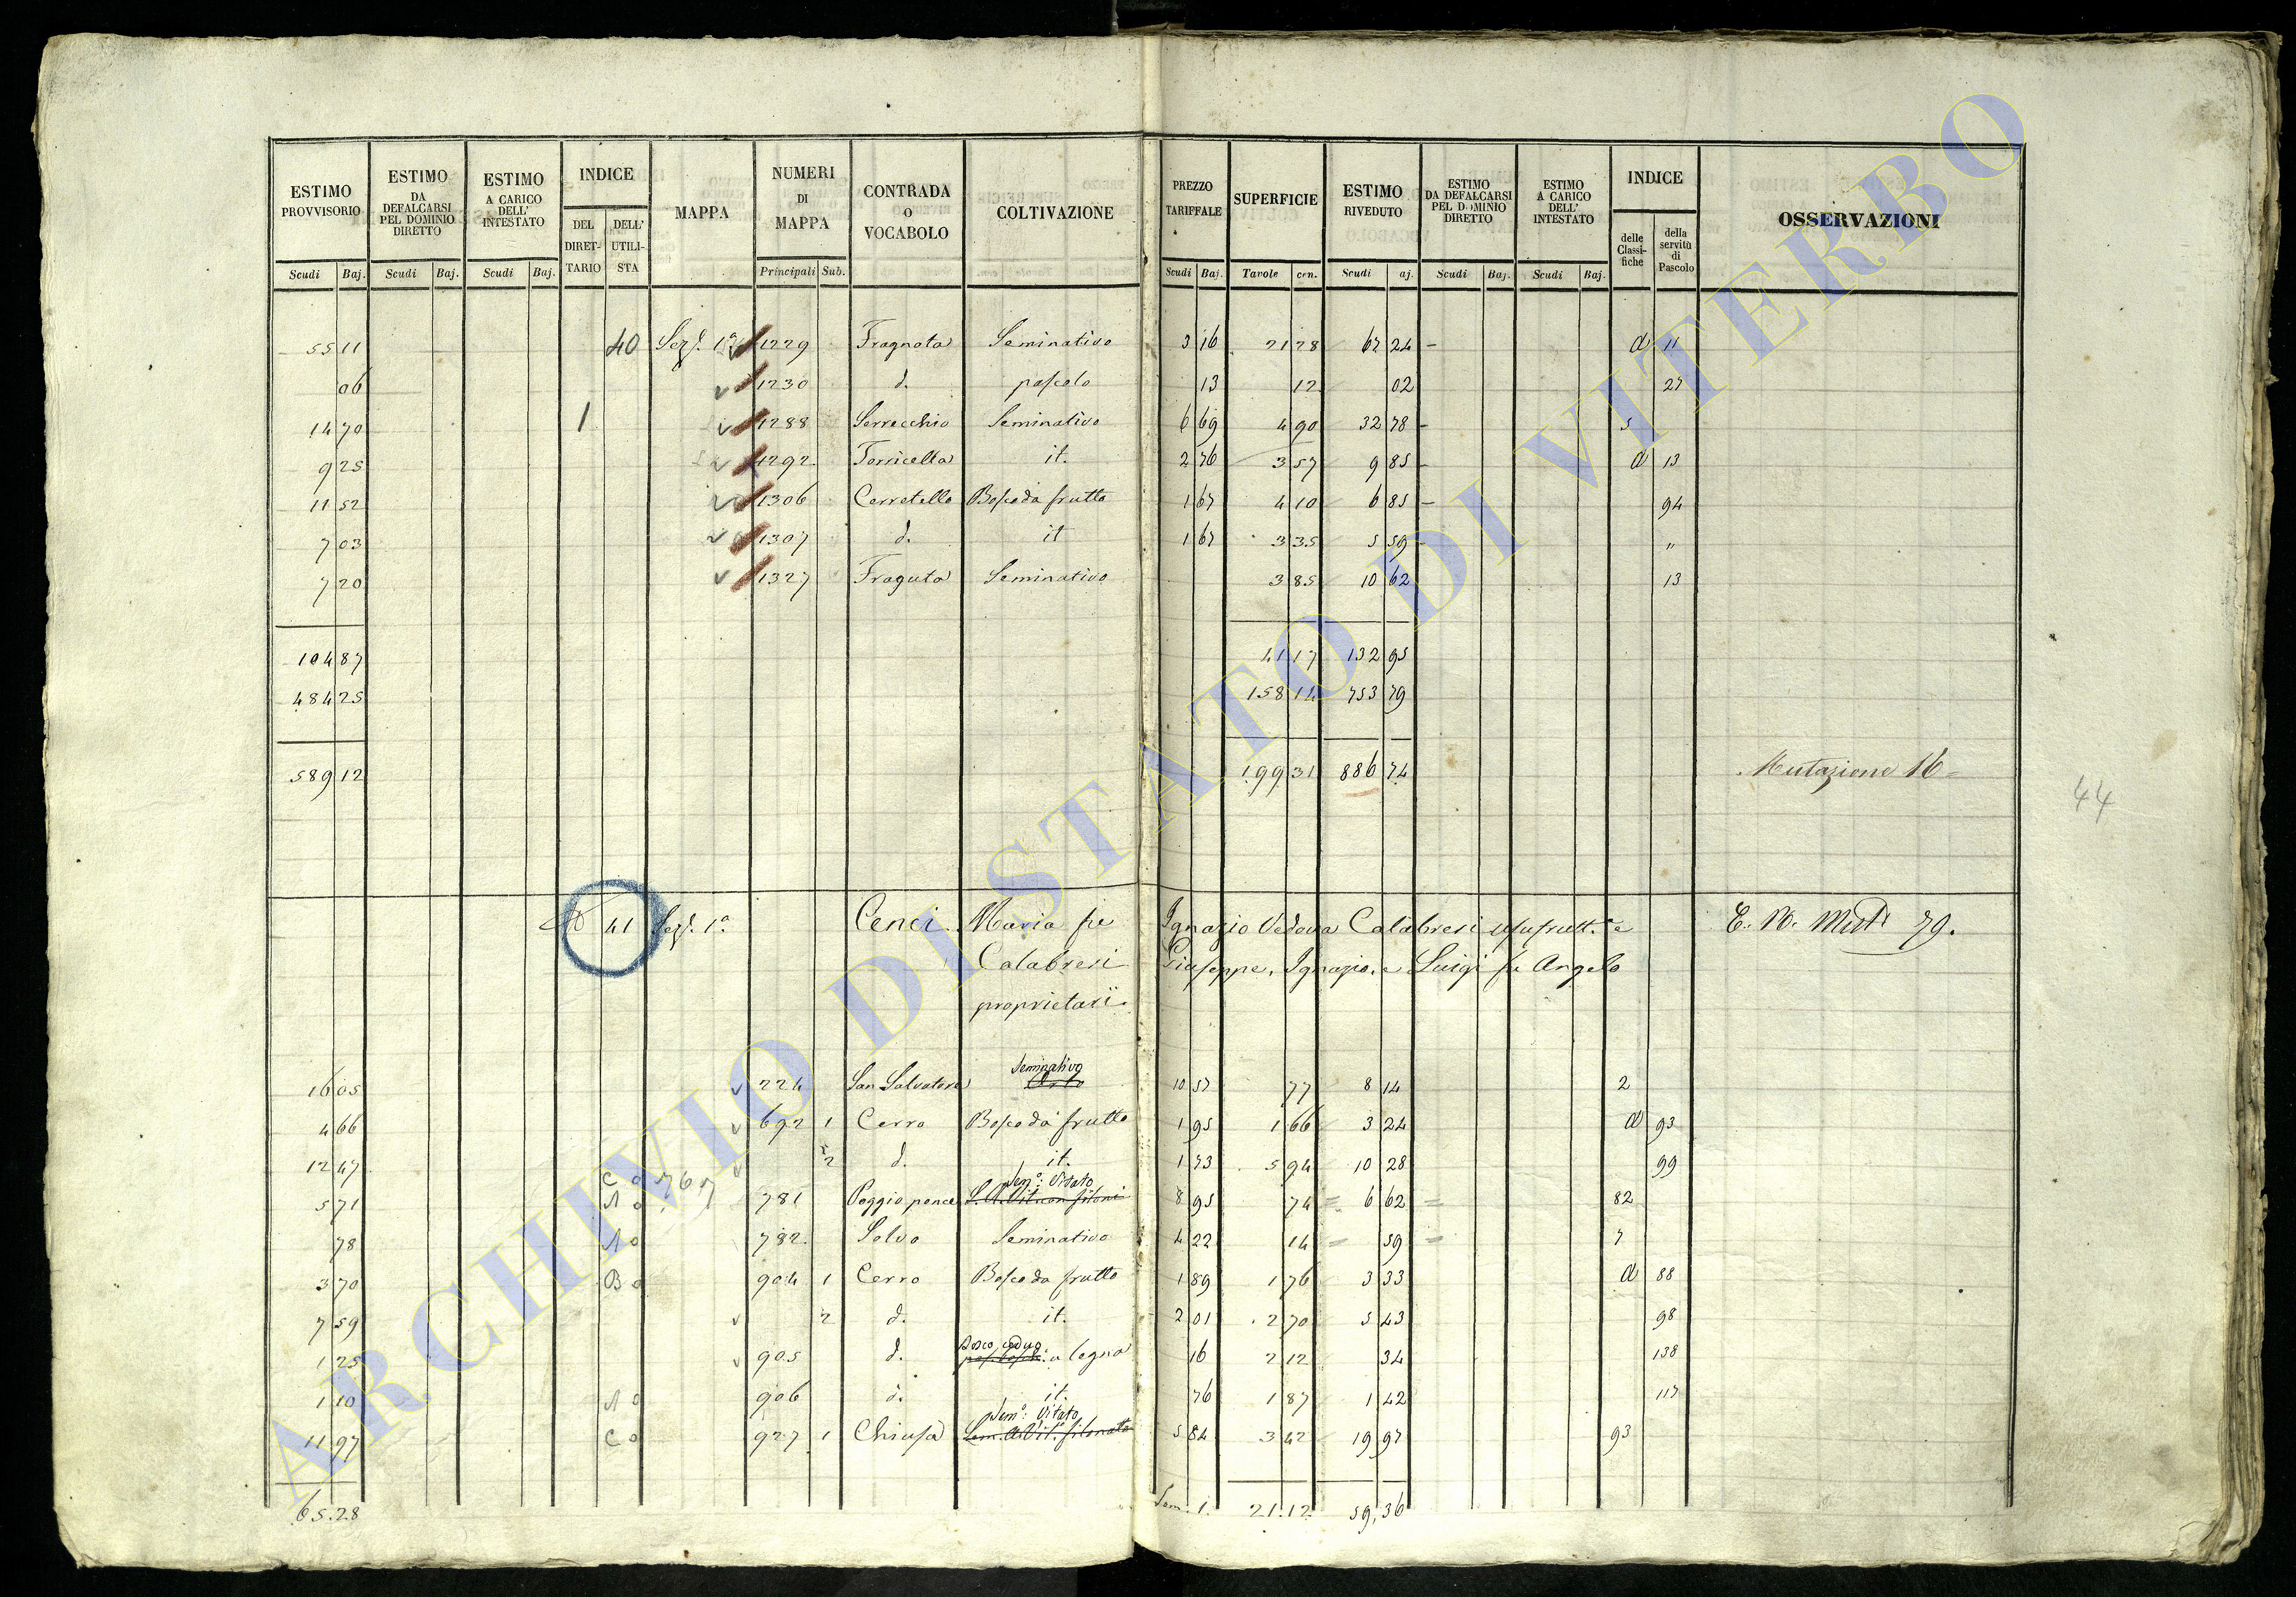 ESTIMO PROVVISORIO Scudi Baj. ESTIMO DA DEFALCARSI PEL DOMINIO DIRETTO Scudi Baj. ESTIMO A CARICO DELL' INTESTATO Scudi Baj. INDICE DEL DIRETTARIO DELL' UTILISTA MAPPA NUMERI DI MAPPA Principali Sub. CONTRADA O VOCABOLO COLTIVAZIONE PREZZO TARIFFALE Scudi Baj. SUPERFICIE Tavole cen. ESTIMO RIVEDUTO Scudi aj. ESTIMO DA DEFALCARSI PEL DOMINIO DIRETTO Scudi Baj. ESTIMO A CARICO DELL' INTESTATO Scudi Baj. INDICE delle Classifiche della servitù di Pascolo OSSERVAZIONI
55 11 40 Sez. 1a 1229 Fragnota Seminativo 3 16 21 28 67 24 d 11
06 1230 d. pascolo 13 12 02 27
14 70 1 1288 Serrecchio Seminativo 6 69 4 90 32 78 5
9 25 1292 Torricella it. 2 76 3 57 9 85 d 13
11 52 1306 Cerretello Bosco da frutto 1 67 4 10 6 85 94
7 03 1307 d. it 1 67 3 35 5 59 "
7 20 1327 Fraguta Seminativo 3 85 10 62 13
104 87 41 17 132 95
484 25 158 14 753 79
589 12 199 31 886 74 Mutazione 16
44
41 Sez. 1a Cenci Maria fu Ignazio Vedova Calabresi usufrutt.e E. N. 79.
Calabresi Giuseppe, Ignazio, e Luigi fu Angelo
proprietari
Seminativo
16 05 224 San Salvatore Orto 10 57 77 8 14 2
4 66 692 1 Cerro Bosco da frutto 1 95 1 66 3 24 d 93
12 47 2 d. it. 1 73 5 94 10 28 99
C 767 Sem.o Vitato
5 71 A 781 Poggio ponce 8 95 74 6 62 82
78 A 782 Selva Seminativo 4 22 14 59 7
3 70 B 904 1 Cerro Bosco da frutto 1 89 1 76 3 33 d 88
7 59 2 d. it. 2 01 2 70 5 43 98
Bosco ceduo
1 25 905 d. a legna 16 2 12 34 138
1 10 A 906 d. it. 76 1 87 1 42 117
Sem.o Vitato
11 97 C 927 1 Chiusa Sem. filonato 5 84 3 42 19 97 93
65.28 Som. 1. 21.12 59,36
ARCHIVIO DI STATO DI VITERBO